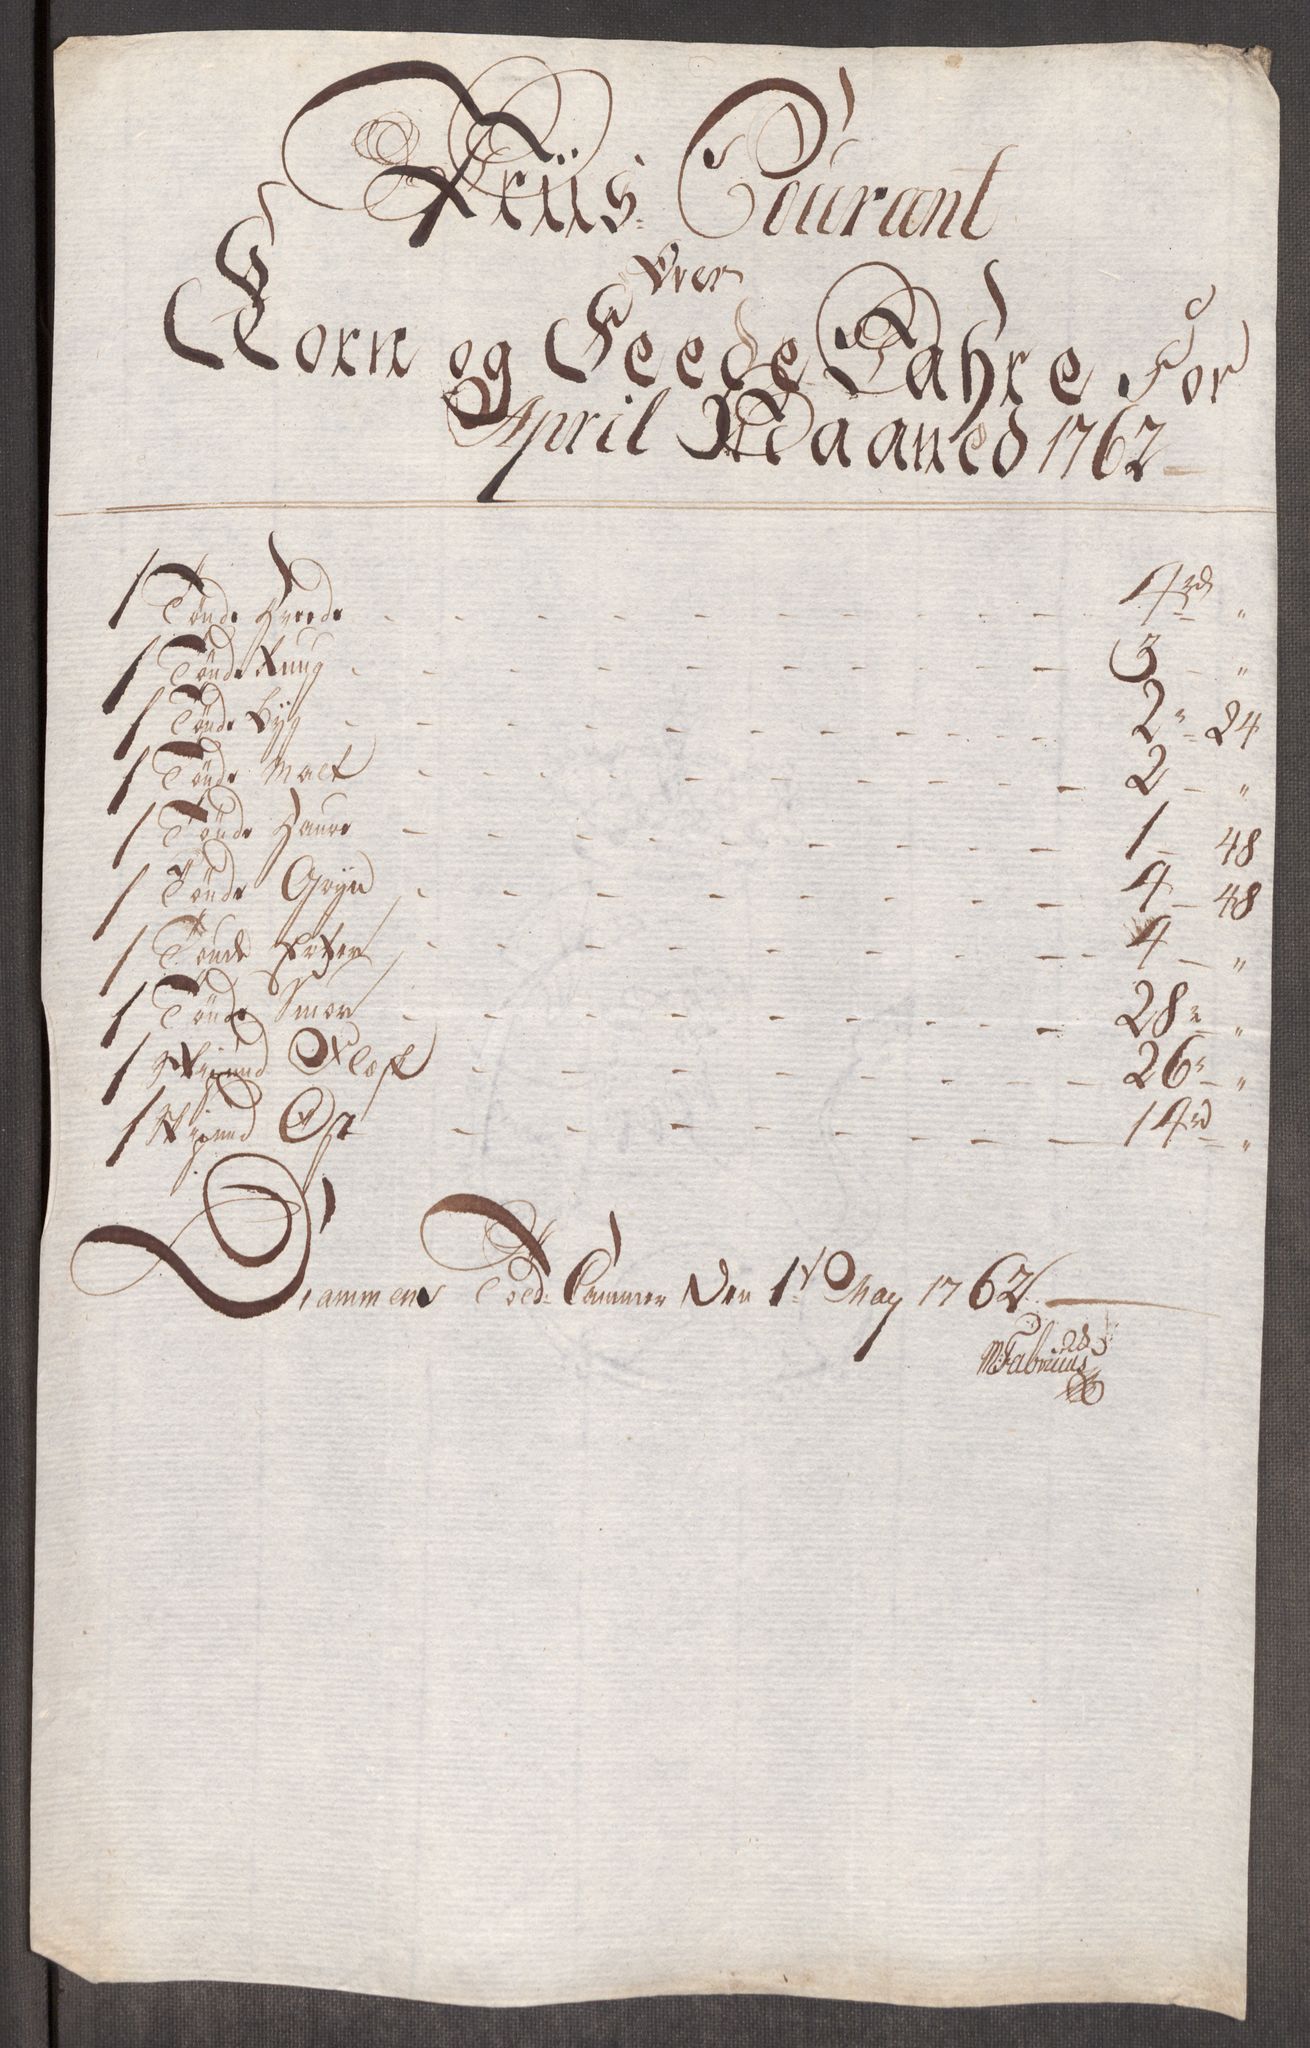 Priis Courant
Over
Korn og Feede Vahre For
April Maaned 1762
1 Tönde Hvede - - - 4 rd "
1 Tönde Ruug - - - 3 - "
1 Tönde Byg - - - 2 - 24
1 Tönde Malt - - - 2 - "
1 Tönde Haure - - - 1 - 48
1 Tönde Gryn - - - 4 - 48
1 Tönde Erter - - - 4 - "
1 Tönde Smør - - - 28 - "
1 Skipund Flesk - - - 26 - "
1 Skipund Ost - - - 14 rd "
Drammens Told Cammer Den 1t May 1762
M Fabricius